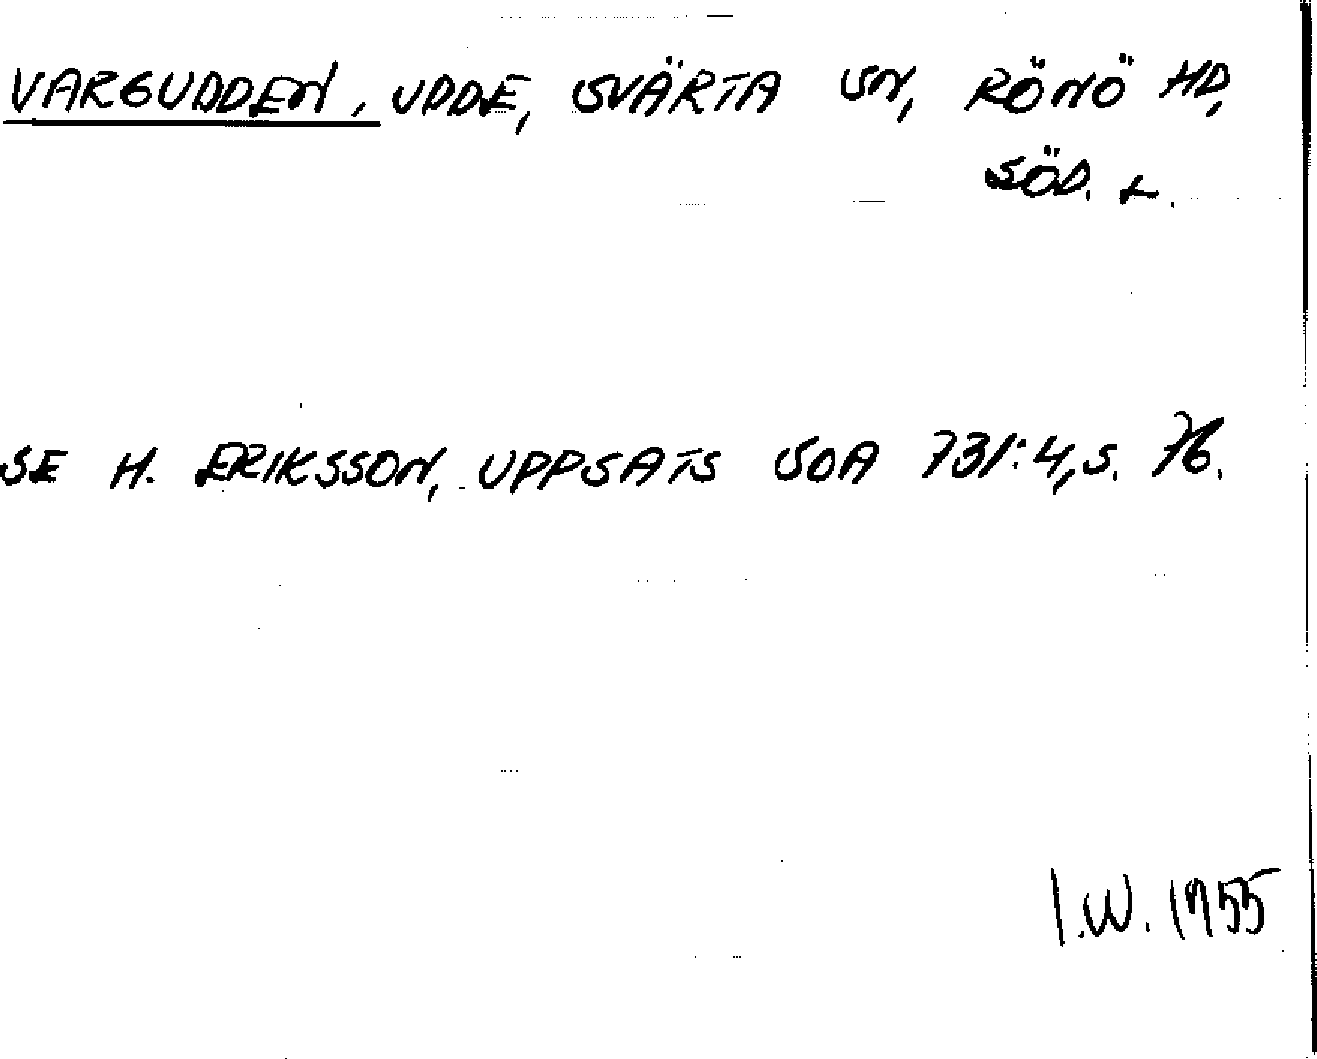 VARGUDDEN, UDDE, SVÄRTA SN, RÖNÖ HD,
SÖD. L.
SE H. ERIKSSON, UPPSATS SOA 731:4, S. 76.
I.W. 1955